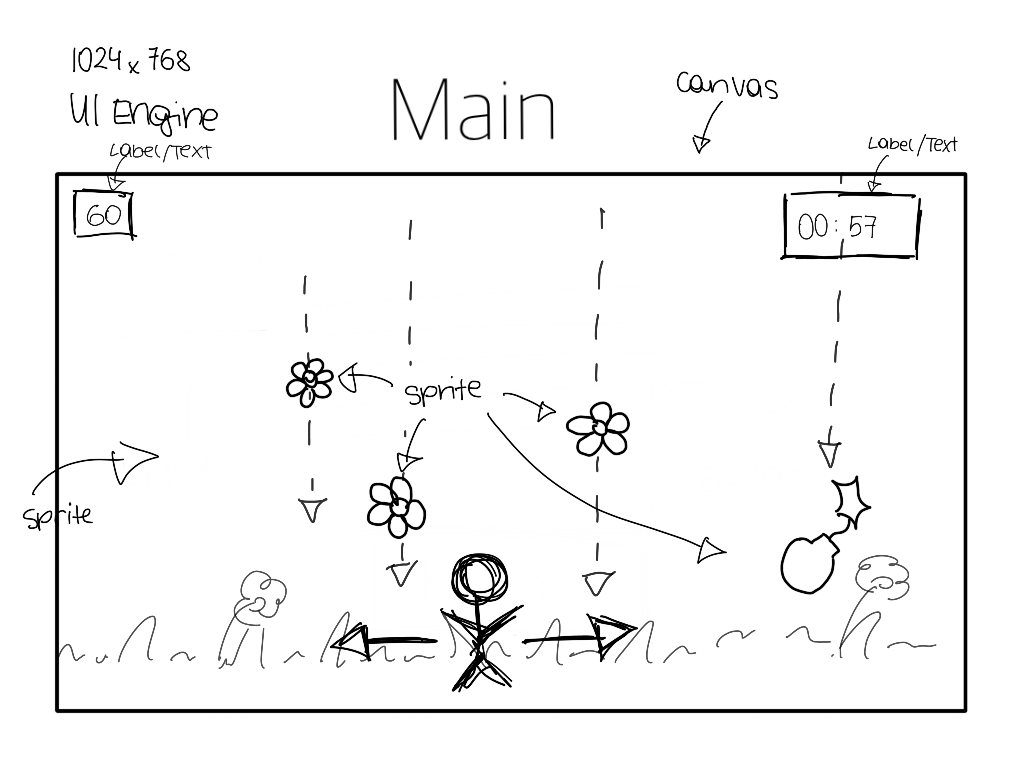 1024 x 768
UI Engine
Main
canvas
Label/Text
Label/Text
60
00:57
sprite
sprite